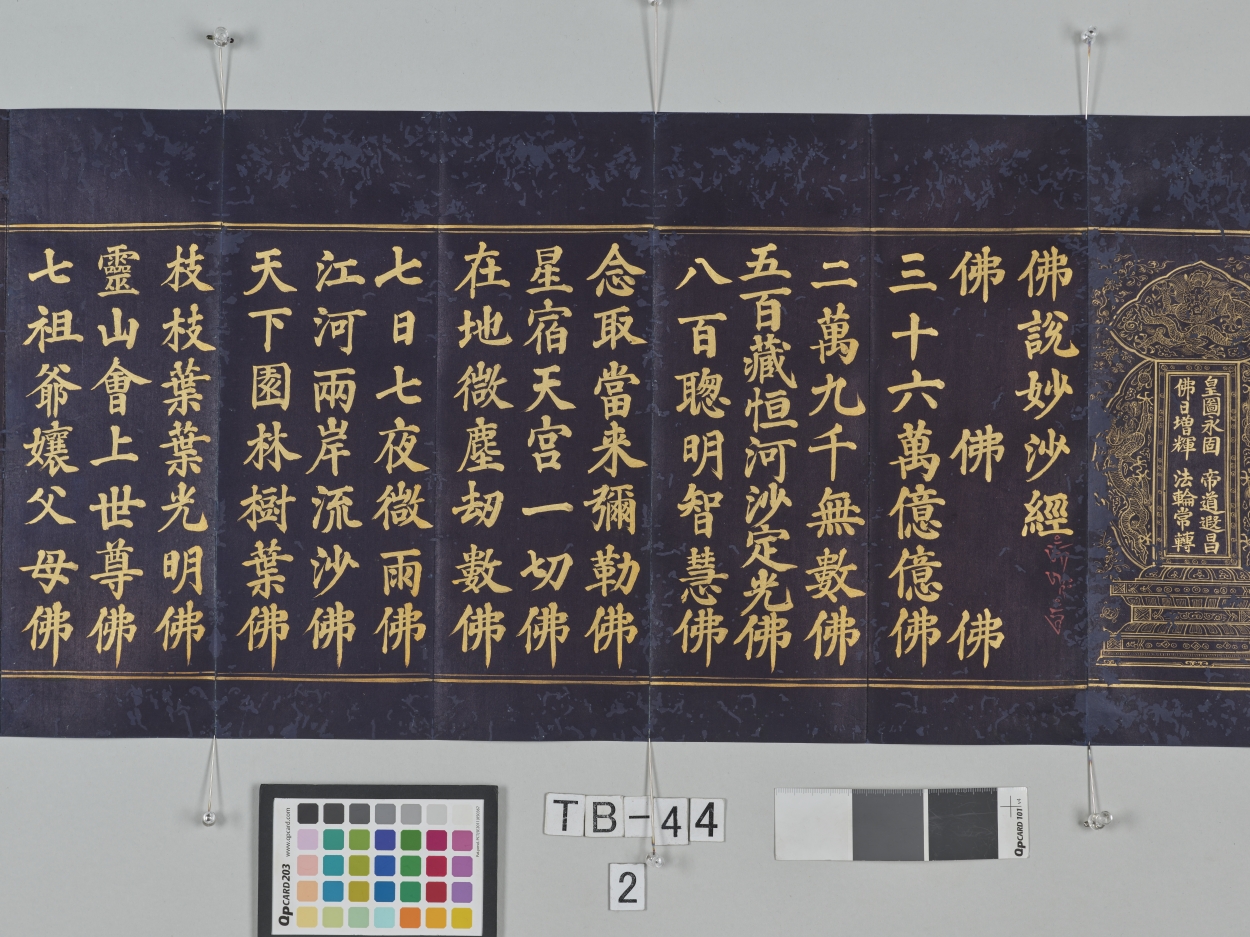 皇圖永固 帝道遐昌
佛日增輝 法輪常轉
佛說妙沙經
佛 佛 佛
三十六萬億億佛
二萬九千無數佛
五百藏恒河沙定光佛
八百聰明智慧佛
念取當来彌勒佛
星宿天宫一切佛
在地微塵劫數佛
七日七夜微雨佛
江河兩岸流沙佛
天下園林樹葉佛
枝枝葉葉光明佛
靈山會上世尊佛
七祖爺孃父母佛
TB-44
2
QpCARD 203
www.qpcard.com
QpCARD 101 v4